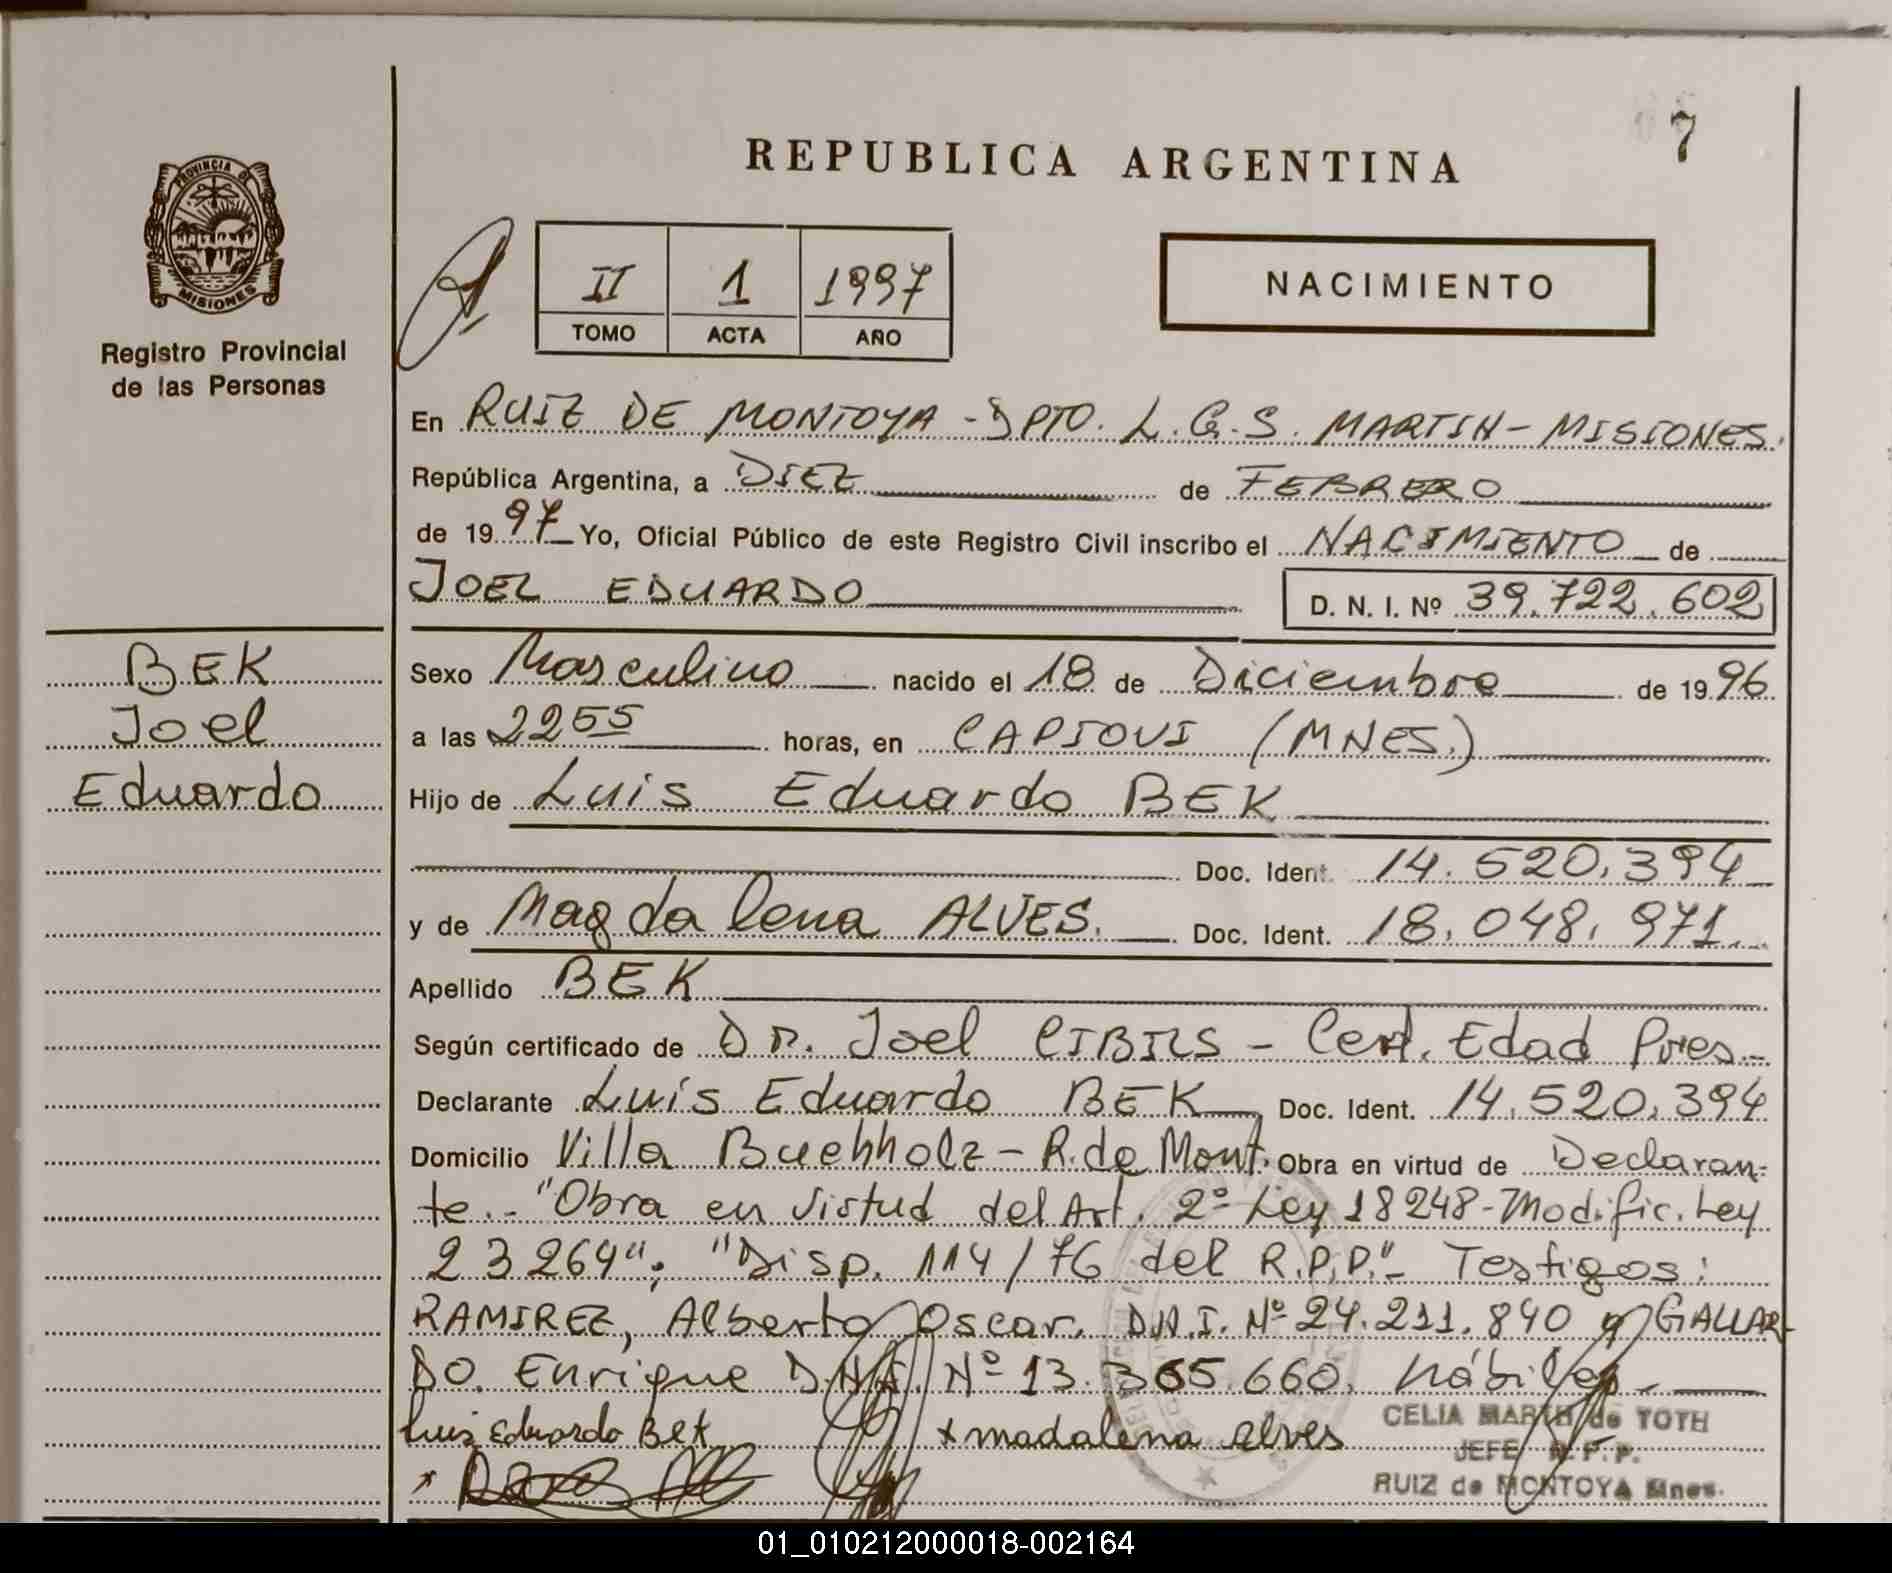 7
REPUBLICA ARGENTINA
PROVINCIA DE
MISIONES
Registro Provincial
de las Personas
II 1 1997
TOMO ACTA AÑO
NACIMIENTO
En RUIZ DE MONTOYA - DPTO. L.G.S. MARTIN - MISIONES.
República Argentina, a DIEZ de FEBRERO
de 1997 Yo, Oficial Público de este Registro Civil inscribo el NACIMIENTO de
JOEL EDUARDO D. N. I. Nº 39.722.602
BEK
Joel
Eduardo
Sexo Masculino nacido el 18 de Diciembre de 1996
a las 2255 horas, en CAPIOVI (MNES.)
Hijo de Luis Eduardo BEK
Doc. Ident. 14.520.394
y de Magdalena ALVES. Doc. Ident. 18.048.971.
Apellido BEK
Según certificado de DR. Joel CIBILS - Cert. Edad Pres.
Declarante Luis Eduardo BEK Doc. Ident. 14.520.394
Domicilio Villa Buchholz - R. de Mont. Obra en virtud de Declaran-
te.- "Obra en virtud del Art. 2º Ley 18248-Modific. Ley
23264"; "Disp. 114/76 del R.P.P." Testigos:
RAMIREZ, Alberto Oscar. D.N.I. Nº 24.211.840 y GALLAR-
DO. Enrique D.N.I. Nº 13.365.660. hábiles
Luis Eduardo Bek x madalena alves
CELIA MARTH de TOTH
JEFE R.P.P.
RUIZ de MONTOYA Mnes.
01_010212000018-002164